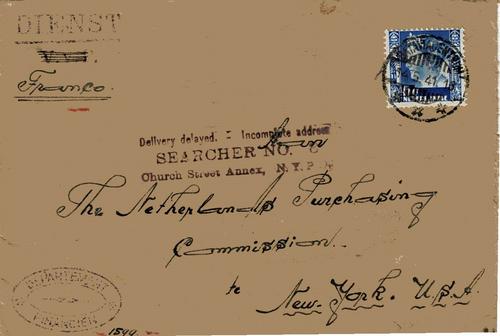 DIENST
Franco.
6.41
Delivery delayed. - Incomplete address
SEARCHER NO.
Church Street Annex, N.Y.P.
Aan
The Netherlands Purchasing
Commission.
te New-York. U.S.A.
DEPARTEMENT
FINANCIEN
1540